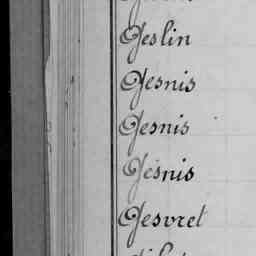 Geslin
Gesnis
Gesnis
Gesnis
Gesvret